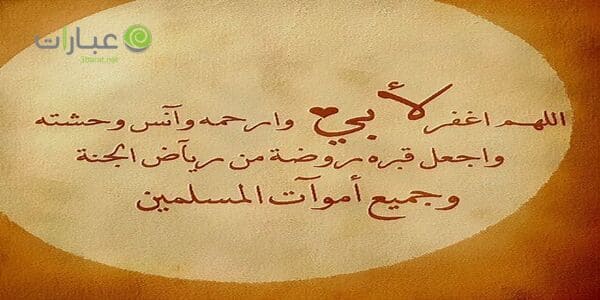 عبارات
3barat.net
اللهم اغفر لأبي وارحمه وآنس وحشته
واجعل قبره روضة من رياض الجنة
وجميع أموآت المسلمين